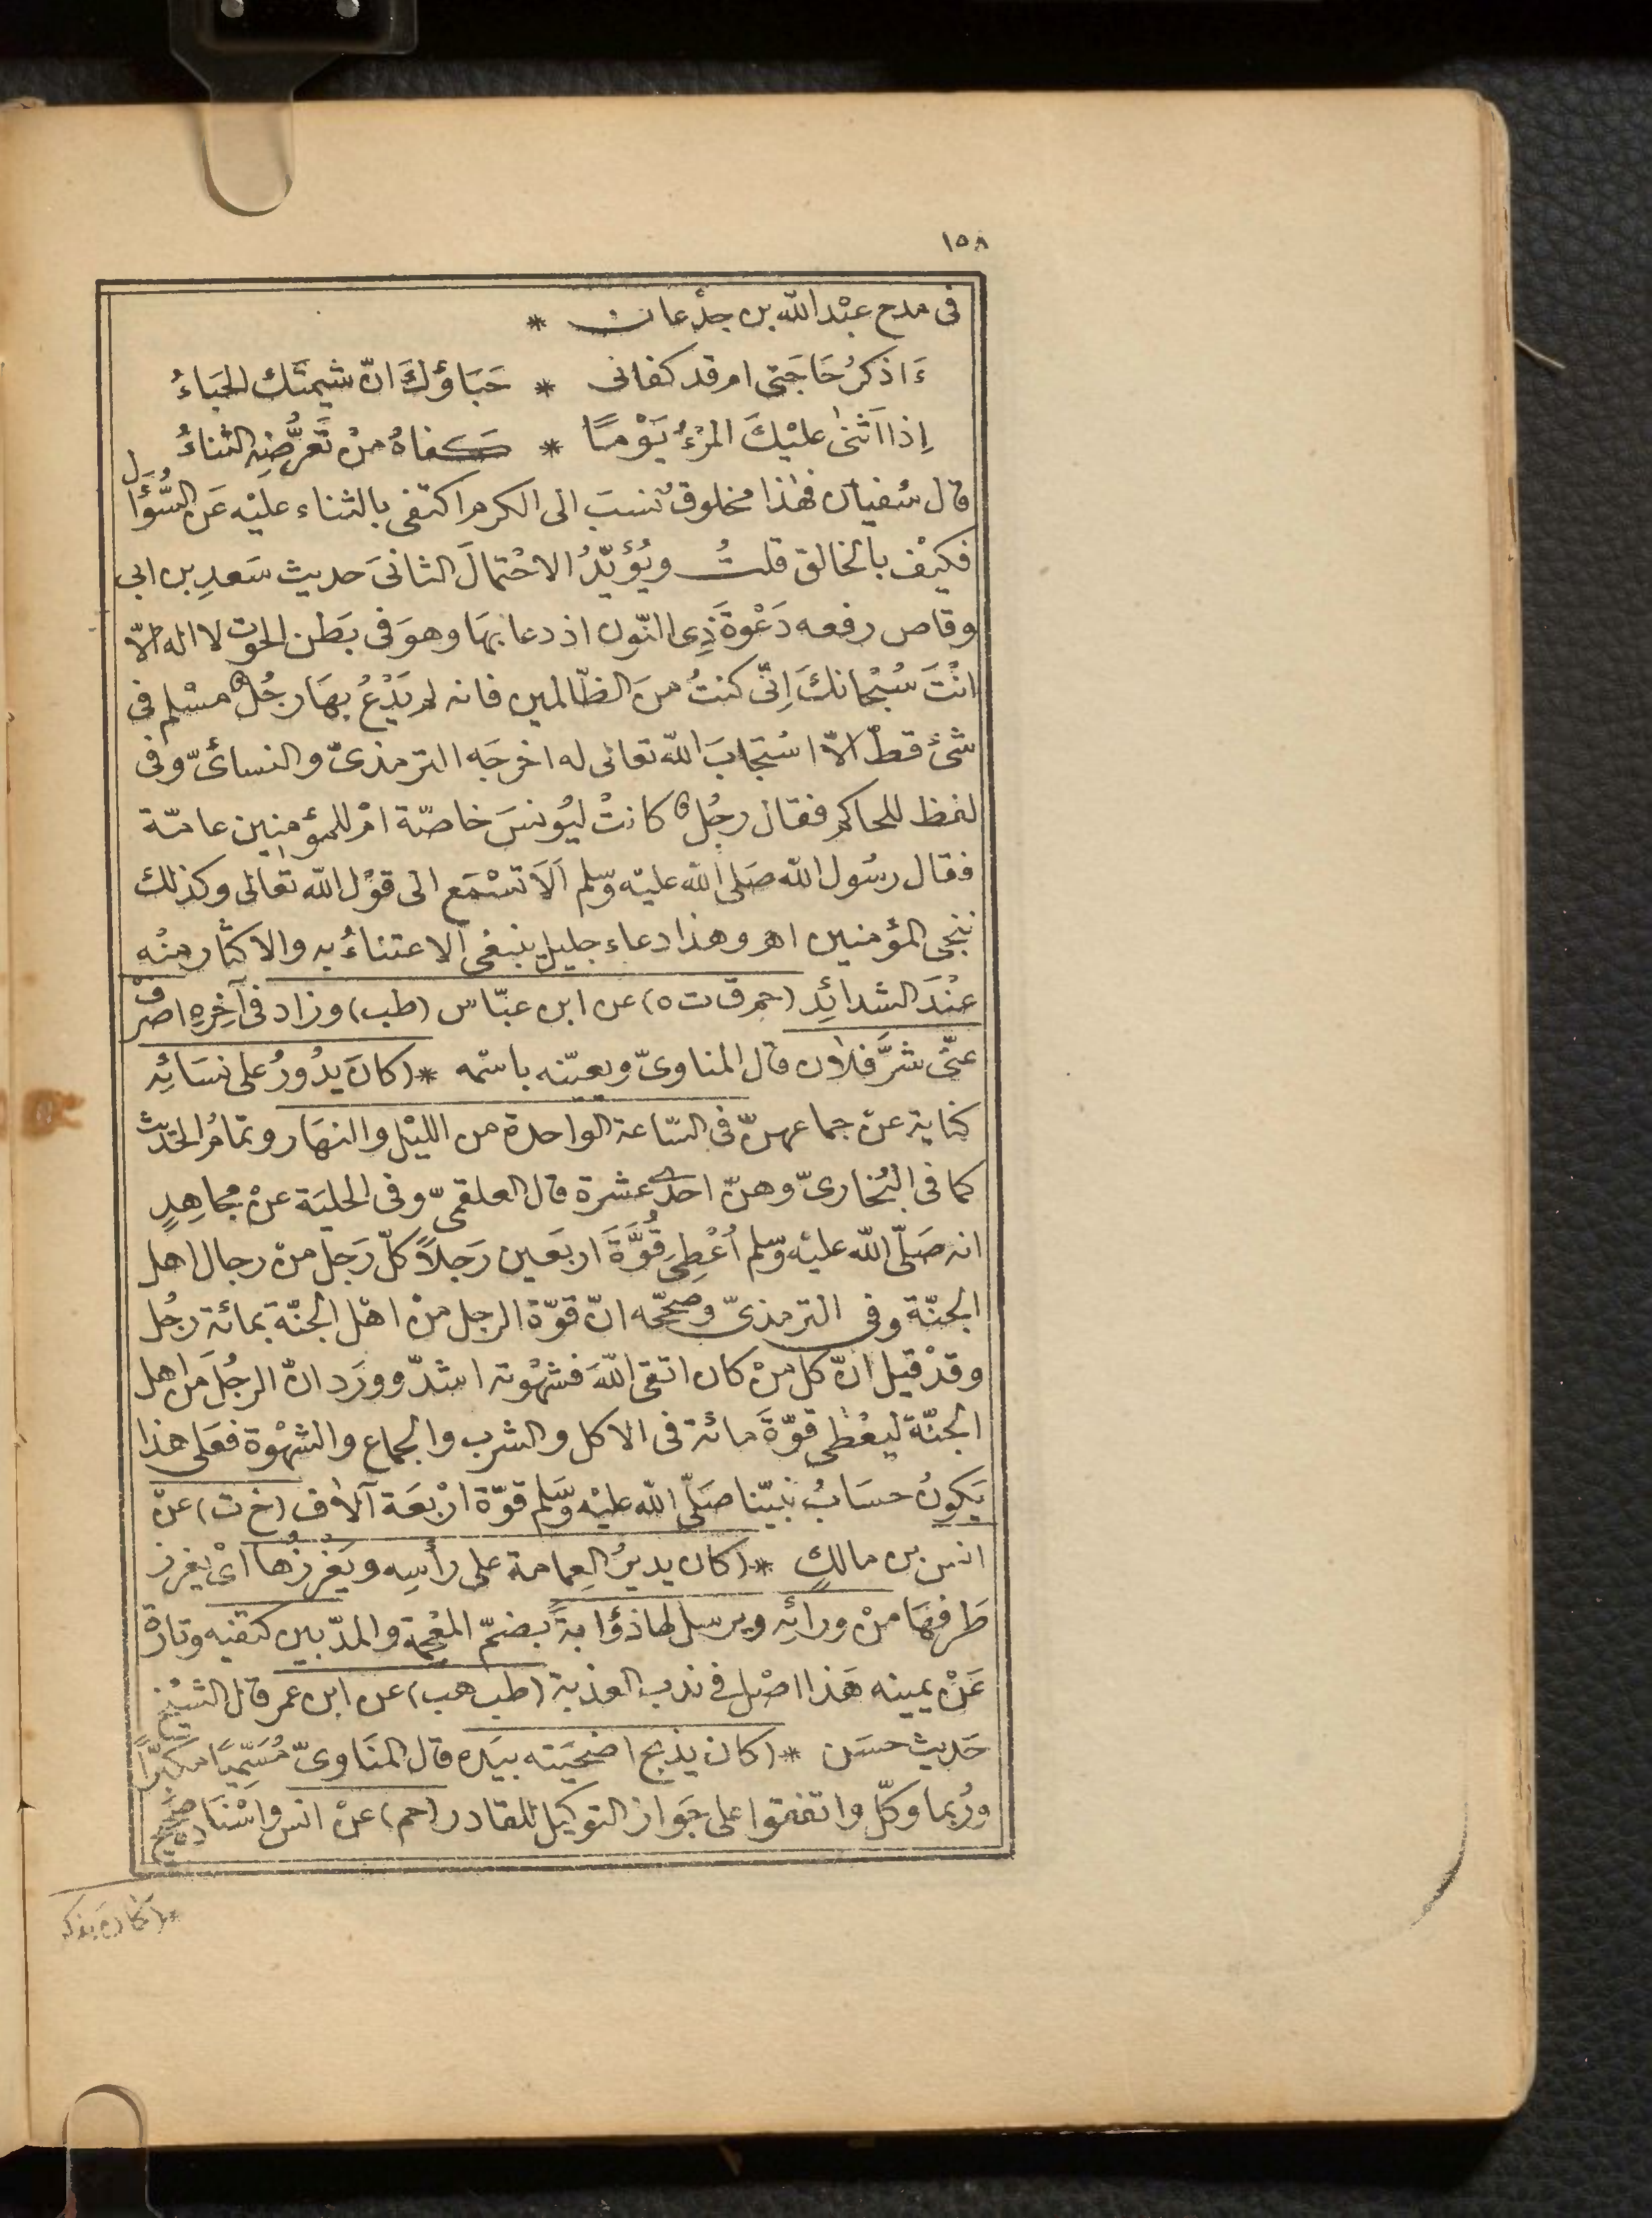 ١٥٨
فى مدح عبْد اللّه بن جدْعان *
ءَاذكرُ حَاجَتى ام قد كفانى * حَبَاؤكَ انّ شيمتَك الحَبَاءُ
اِذا اَثنىٰ عليْكَ المرْءُ يَوْمًا * كفاهُ منْ تَعَرُّضِهِ الثناءُ
قال سُفيان فهٰذا مخلوق نُسبَ الى الكرم اكتفى بالثناء عليْه عَن السُّؤال
فكيْف بالخالق قلتُ ويُؤيّدُ الاحْتمالَ الثانىَ حديث سَعدِ بن ابى
وقاص رفعه دَعْوَةَ ذِى النّون اذ دعا بهَا وهوَ فى بَطن الحوت لا اله الّا
انْتَ سُبْحانكَ اِنّى كنتُ منَ الظّالمين فانه لم يَدْعُ بهَا رجُلٌ مسْلم فى
شئ قطّ الّا اسْتجَابَ اللّه تعالى له اخرجَه الترمذىّ والنسائىّ وفى
لفظ للحاكم فقال رجُلٌ كانتْ ليُونسَ خاصّة امْ للمؤمنين عامّة
فقال رسُول اللّه صَلى اللّه عليْه وسّلم اَلَا تسْمَع الى قوْل اللّه تعالى وكذلك
ننجى المؤمنين اهـ وهذا دعاء جليل ينبغى الاعتناءُ به والاكثار منْه
عنْدَ الشدائِد (حم ق ت ه) عن ابن عبّاس (طب) وزاد فى آخِرِهِ اصرفْ
عنّى شرَّ فلان قال المناوىّ ويعيّنه باسْمه * (كانَ يدُورُ على نسَائِه
كناية عنْ جماعهنّ فى السّاعة الواحدة من الليْل والنهَار وتمامُ الحَديث
كما فى البُخارىّ وهنّ احدٰى عشرة قال العلقمىّ وفى الحليَة عنْ مجاهِدٍ
انه صَلّى اللّه عليْه وسّلم اُعْطِىَ قُوَّةَ اربَعين رَجلاً كلّ رَجل منْ رجال اهل
الجنّة وفى الترمذىّ وصحّحه انّ قوّة الرجل منْ اهْل الجنّة بمائة رجُل
وقدْ قيل انّ كل منْ كان اتقى اللّهَ فشهْوته اشدّ ووَرَد انّ الرجُلَ من اهل
الجنّة ليعْطى قوّةَ مائة فى الاكل والشرب والجماع والشهْوة فعَلى هذا
يَكونُ حسَابُ نبيّنا صَلّى اللّه عليْه وسَّلم قوّة ارْبعَة آلاف (خ ت) عنْ
انس بن مالكٍ * (كان يديرُ العِمامة على رأسِه ويَغْرِزُها اىْ يغرز
طَرفهَا منْ ورائِه ويرسل لها ذؤابةً بضمّ المعْجمة والمدّ بين كتفيه وتارةً
عَنْ يمينه هَذا اصْل فى ندب العذبة (طب هب) عن ابن عمر قال الشيْخ
حَديث حسَن * (كان يذبح اضحيَته بيَده قال المنَاوىّ مُسَمّيًا مكبّرًا
ورُبما وكّل واتفقوا على جَواز التوكيل للقادر (حم) عنْ انس واسْنَاده صَحيْح
* (كانَ يذكر